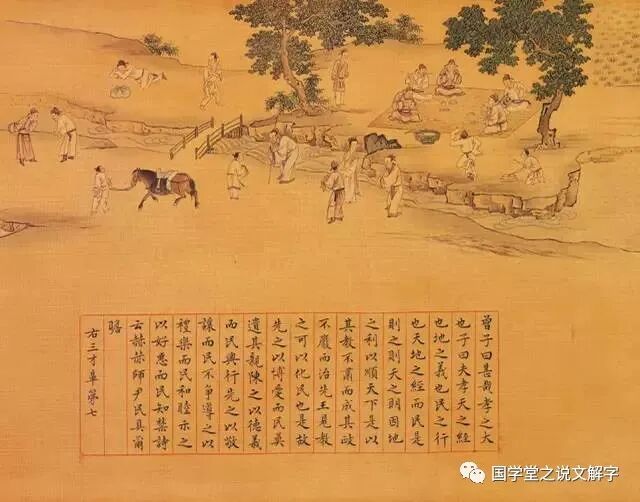 曾子曰甚哉孝之大
也子曰夫孝天之經
也地之義也民之行
也天地之經而民是
則之則天之明因地
之利以順天下是以
其教不肅而成其政
不嚴而治先王見教
之可以化民也是故
先之以博愛而民莫
遺其親陳之以德義
而民興行先之以敬
讓而民不爭導之以
禮樂而民和睦示之
以好惡而民知禁詩
云赫赫師尹民具爾
瞻
右三才章第七
国学堂之说文解字